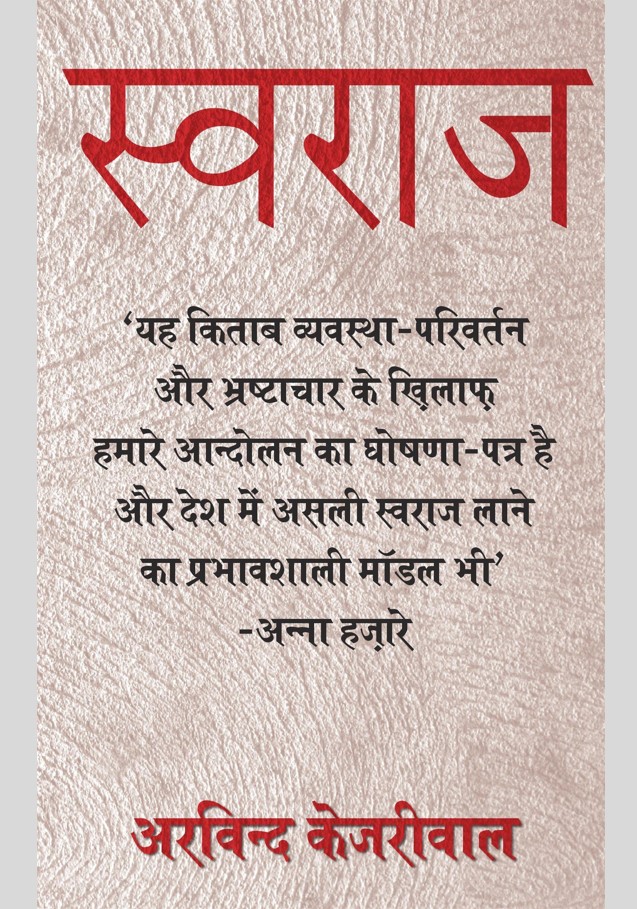 स्वराज
‘यह किताब व्यवस्था-परिवर्तन
और भ्रष्टाचार के ख़िलाफ़
हमारे आन्दोलन का घोषणा-पत्र है
और देश में असली स्वराज लाने
का प्रभावशाली मॉडल भी’
-अन्ना हज़ारे
अरविन्द केजरीवाल